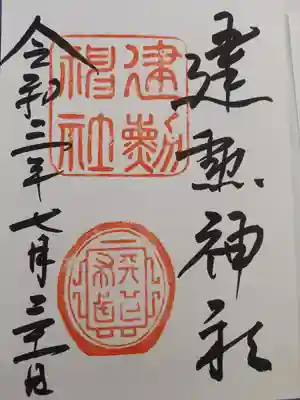 建勲神社
建勲
神社
令和三年七月二十一日